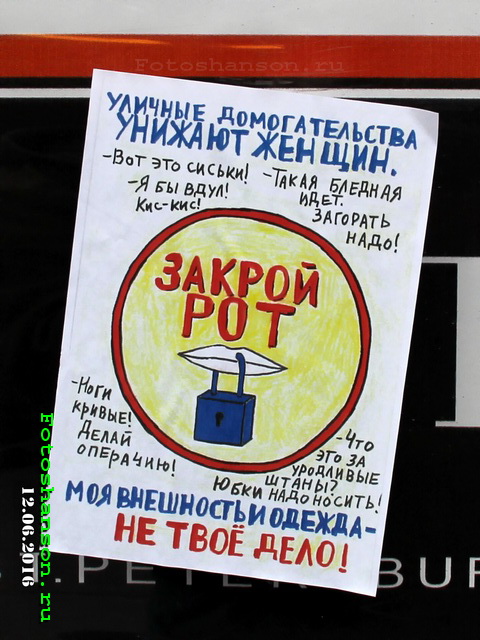 Fotoshanson.ru
УЛИЧНЫЕ ДОМОГАТЕЛЬСТВА
УНИЖАЮТ ЖЕНЩИН.
-Вот это сиськи!
-Я бы вдул!
Кис-кис!
-ТАКАЯ БЛЕДНАЯ
ИДЕТ.
ЗАГОРАТЬ
НАДО!
ЗАКРОЙ
РОТ
-Ноги
кривые!
Делай
операцию!
-Что
это за
уродливые
штаны?
Юбки надо носить!
МОЯ ВНЕШНОСТЬ И ОДЕЖДА-
НЕ ТВОЁ ДЕЛО!
T.PETER BUR
12.06.2016
Fotoshanson.ru